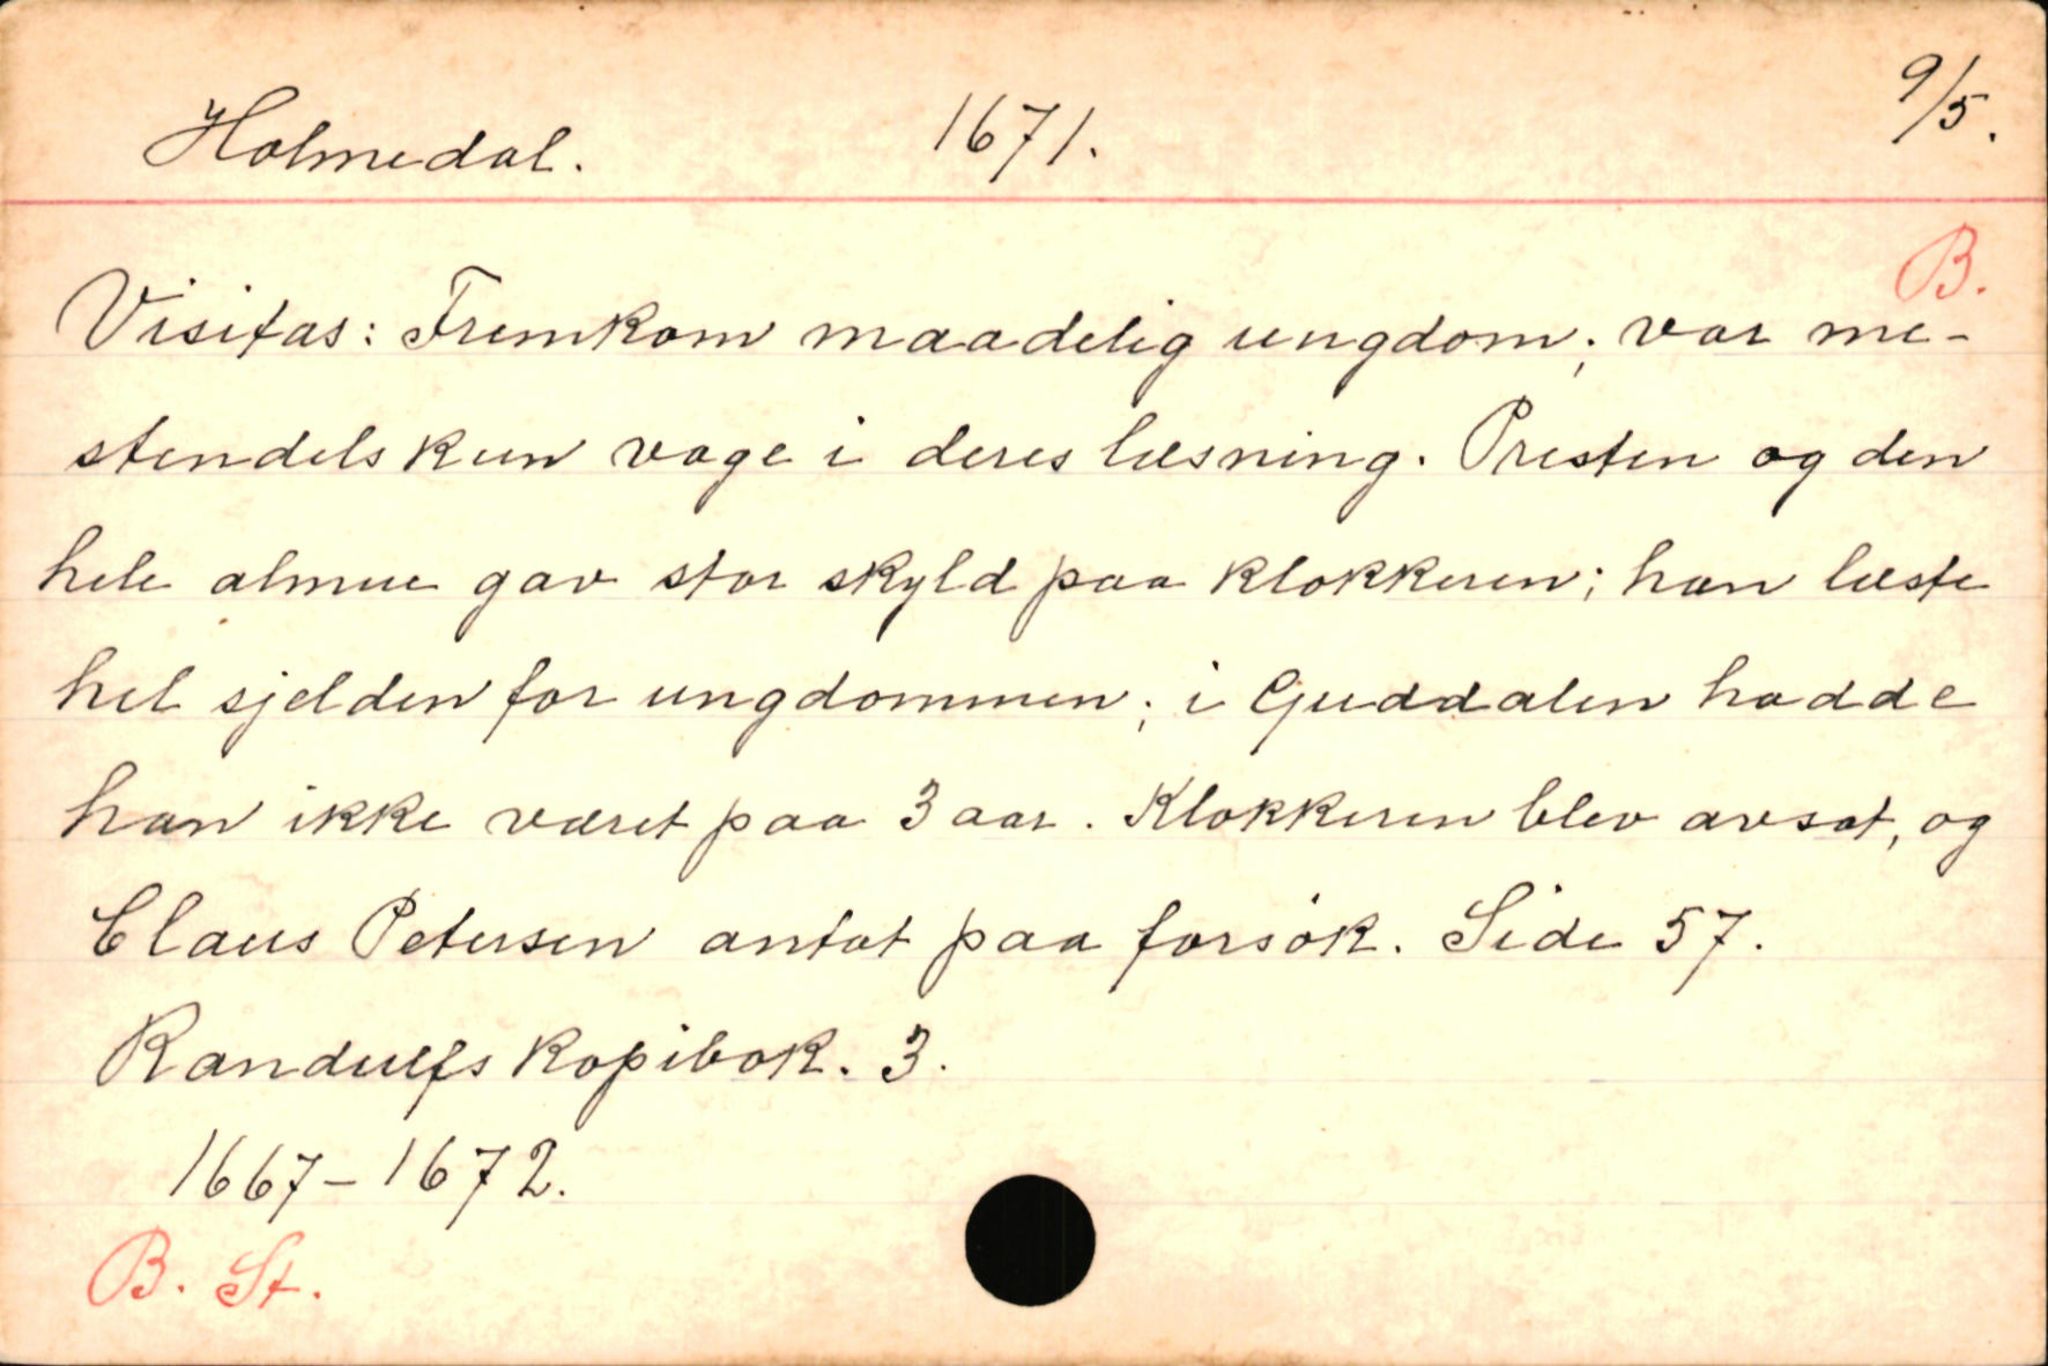 Holmedal. 1671. 9/5.
B.
Visitas: Fremkom maadelig ungdom; var me-
stendels kun vage i deres læsning. Presten og den
hele almue gav stor skyld paa klokkeren; han læste
hel sjelden for ungdommen; i Guddalen hadde
han ikke været paa 3 aar. Klokkeren blev avsat, og
Claus Petersen antat paa forsök. Side 57.
Randulfs kopibok. 3.
1667-1672.
B. St.